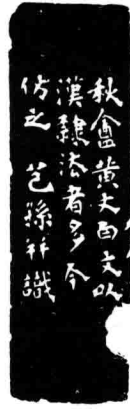 秋盦黄大四文以
漢隸法者多今
仿之 芑孫并識